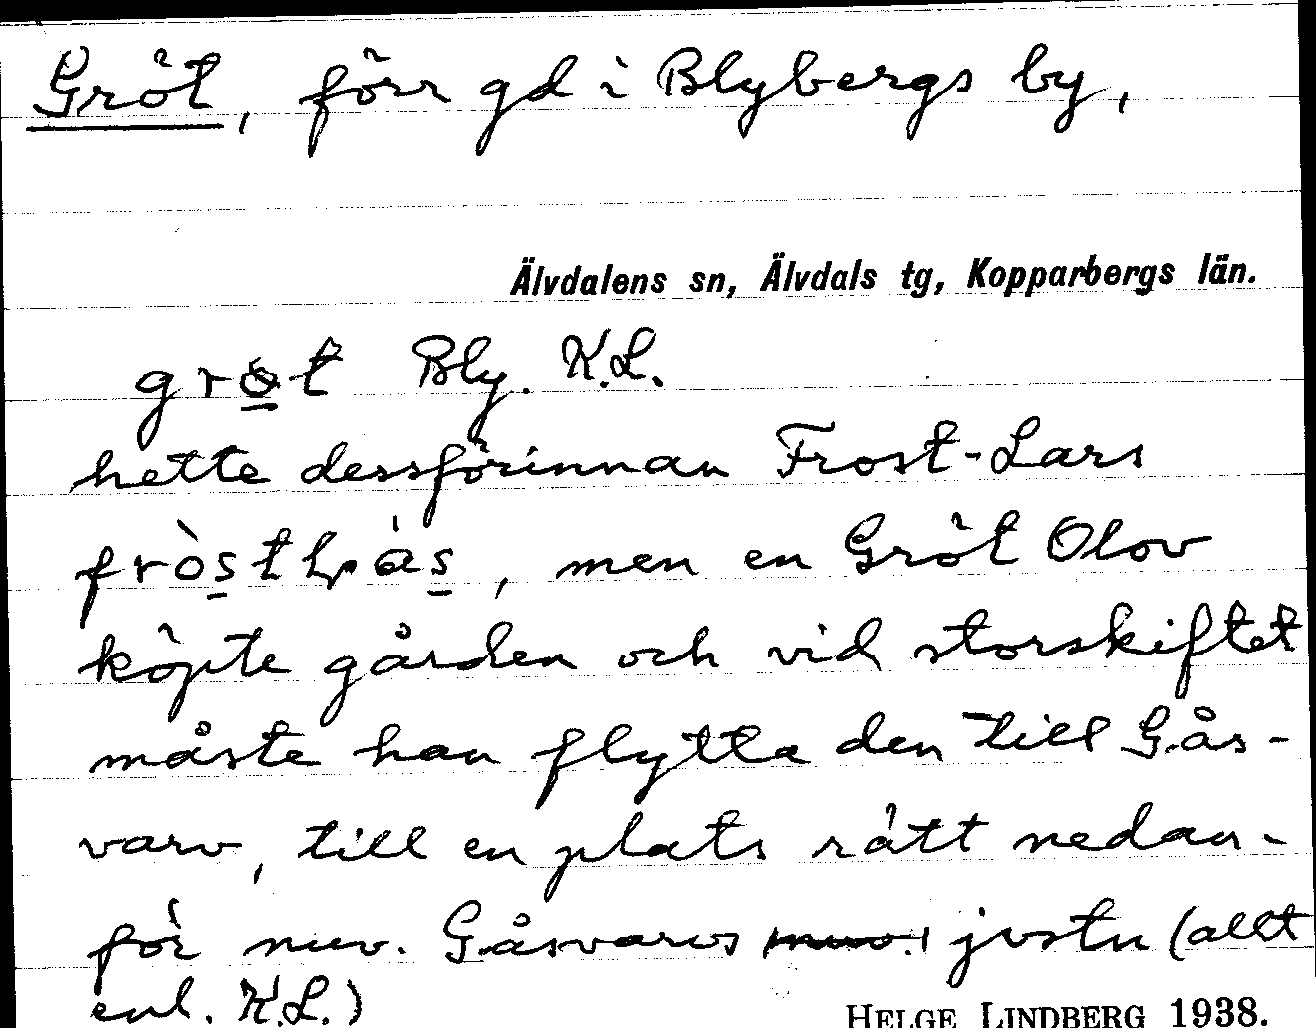 Gröt, förr gd i Blybergs by,
Älvdalens sn, Älvdals tg, Kopparbergs län.
Bly. K.L.
hette dessförinnan Frost-Lars
, men en Gröt Olov
köpte gården och vid storskiftet
måste han flytta den till Gås-
varv, till en plats rätt nedan-
för nuv. Gåsvarvs jvstn (allt
enl. K.L.)
HELGE LINDBERG 1938.